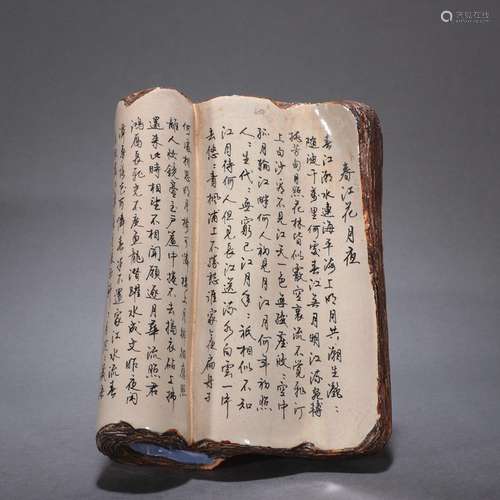 春江花月夜
春江潮水連海平海上明月共潮生灔〻
隨波千萬里何處春江無月明江流宛轉
繞芳甸月照花林皆似霰空裏流不覺飛汀
上白沙看不見江天一色無纖塵皎〻空中
孤月輪江畔何人初見月江月何年初照
人〻生代〻無窮已江月年〻祇相似不知
江月待何人但見長江送流水白雲一片
去悠〻青楓浦上不勝愁誰家今夜扁舟子
何處相思明月樓可憐樓上月徘徊應照
離人妝鏡臺玉戶簾中捲不去搗衣砧上拂
還來此時相望不相聞願逐月華流照君
鴻雁長飛光不度魚龍潛躍水成文昨夜閑
潭夢落花可憐春半不還家江水流春